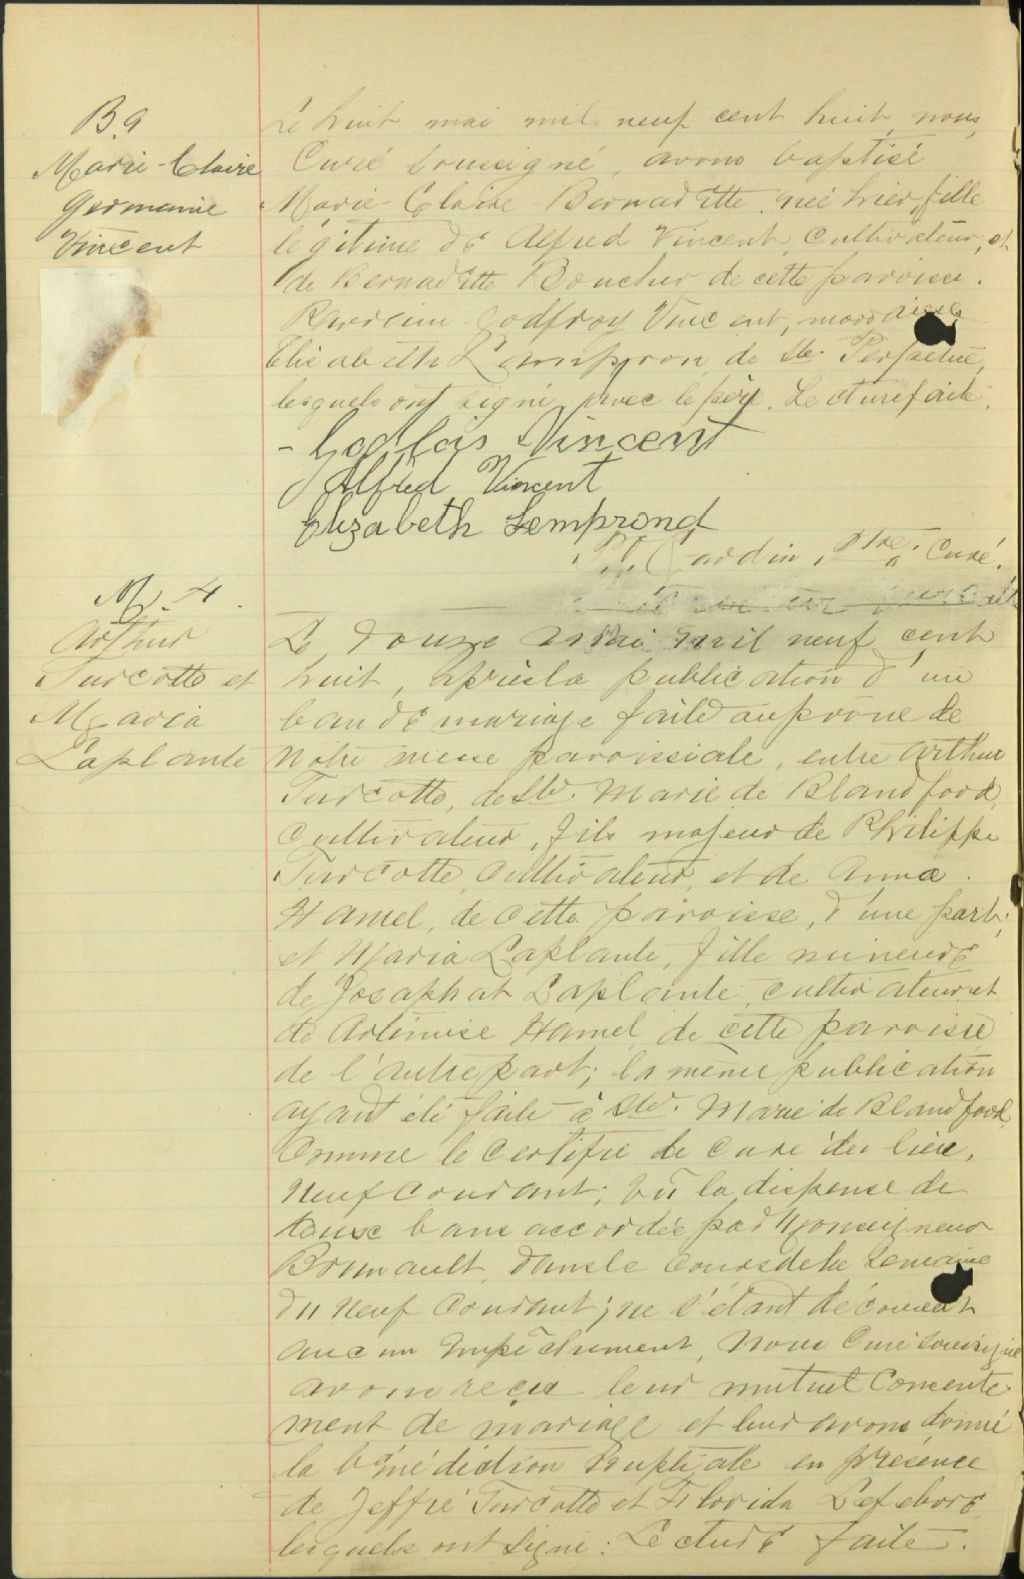 B.9
Marie-Claire
Germaine
Vincent
Le huit mai mil neuf cent huit, nous,
Curé soussigné, avons baptisé
Marie-Claire-Bernadette, née hier, fille
légitime de Alfred Vincent, Cultivateur, et
de Bernadette Boucher de cette paroisse.
Parrain Godfroy Vincent, marraine
Elisabeth Lampron de Ste. Perpétue,
lesquels ont signé avec le père. Lecture faite.
Alfred Vincent
Elizabeth Lemprond
Jardin, Ptre. Curé.
M. 4.
Arthur
Turcotte et
Maria
Laplante
Le douze mai mil neuf cent
huit, après la publication d'un
ban de mariage faite au prône de
notre messe paroissiale, entre Arthur
Turcotte, de Ste. Marie de Blandford,
cultivateur, fils majeur de Philippe
Turcotte, cultivateur, et de Anna
Hamel, de cette paroisse, d'une part;
et Maria Laplante, fille mineure
de Josaphat Laplante, cultivateur et
de Artémise Hamel de cette paroisse
de l'autre part; la même publication
ayant été faite à Ste. Marie de Blandford,
Comme le certifie le curé du lieu,
neuf courant; vu la dispense de
deux bans accordée par Monseigneur
Brunault, dans le cours de la semaine
du neuf courant; ne s'étant découvert
aucun empêchement, Nous Curé soussigné
avons reçu leur mutuel consente
ment de mariage et leur avons donné
la bénédiction nuptiale en présence
de Jeffré Turcotte et Florida Lefebvre,
lesquels ont signé. Lecture faite.